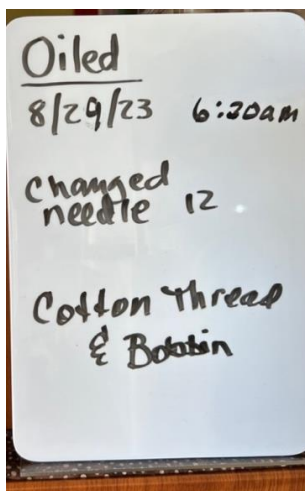 Oiled
8/29/23 6:30am
changed
needle 12
Cotton Thread
& Bobbin